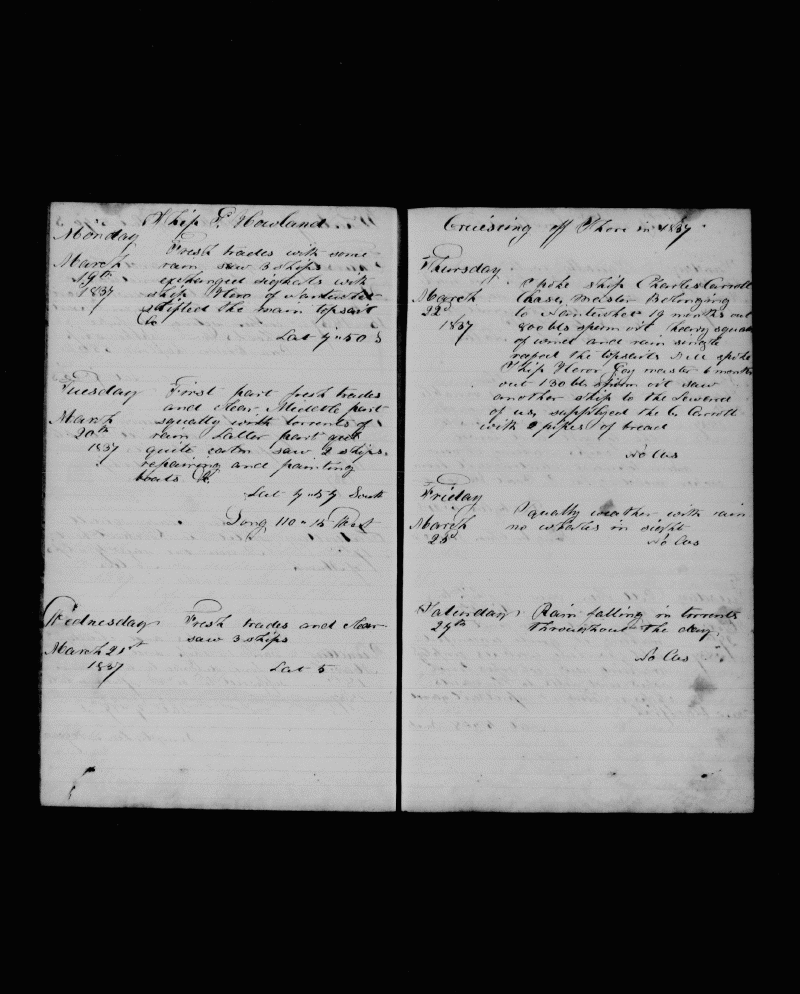 Ship G. Howland
Monday
March
19th
1837
Fresh trades with some
rain saw 3 ships
exchanged signals with
ship Hero of Nantucket
shifted the main topsail
&c
Lat 4"50 S
Tuesday
March
20th
1837
First part fresh trades
and clear Middle part
squally with torrents of
rain Latter part
quite calm saw 2 ships
repairing and painting
boats &c
Lat 4"54 South
Long 110"15 West
Wednesday
March 21st
1837
Fresh trades and clear
saw 3 ships
Lat 5
Cruiseing off Shore in 1837
Thursday
March
22d
1837
Spoke ship Charles Carroll
Chase, Master Belonging
to Nantucket 19 months out
800 bls sperm oil heavy squalls
of wind and rain single
reefed the topsails spoke
Ship Hero Gay master 6 months
out 130 bls sperm oil saw
another ship to the Leward
of us, supplyed the C Carroll
with 2 pipes of bread
No Obs
Friday
March
23d
Squally weather with rain
no whales in sight
No Obs
Saturday
24th
Rain falling in torrents
throughout the day
No Obs